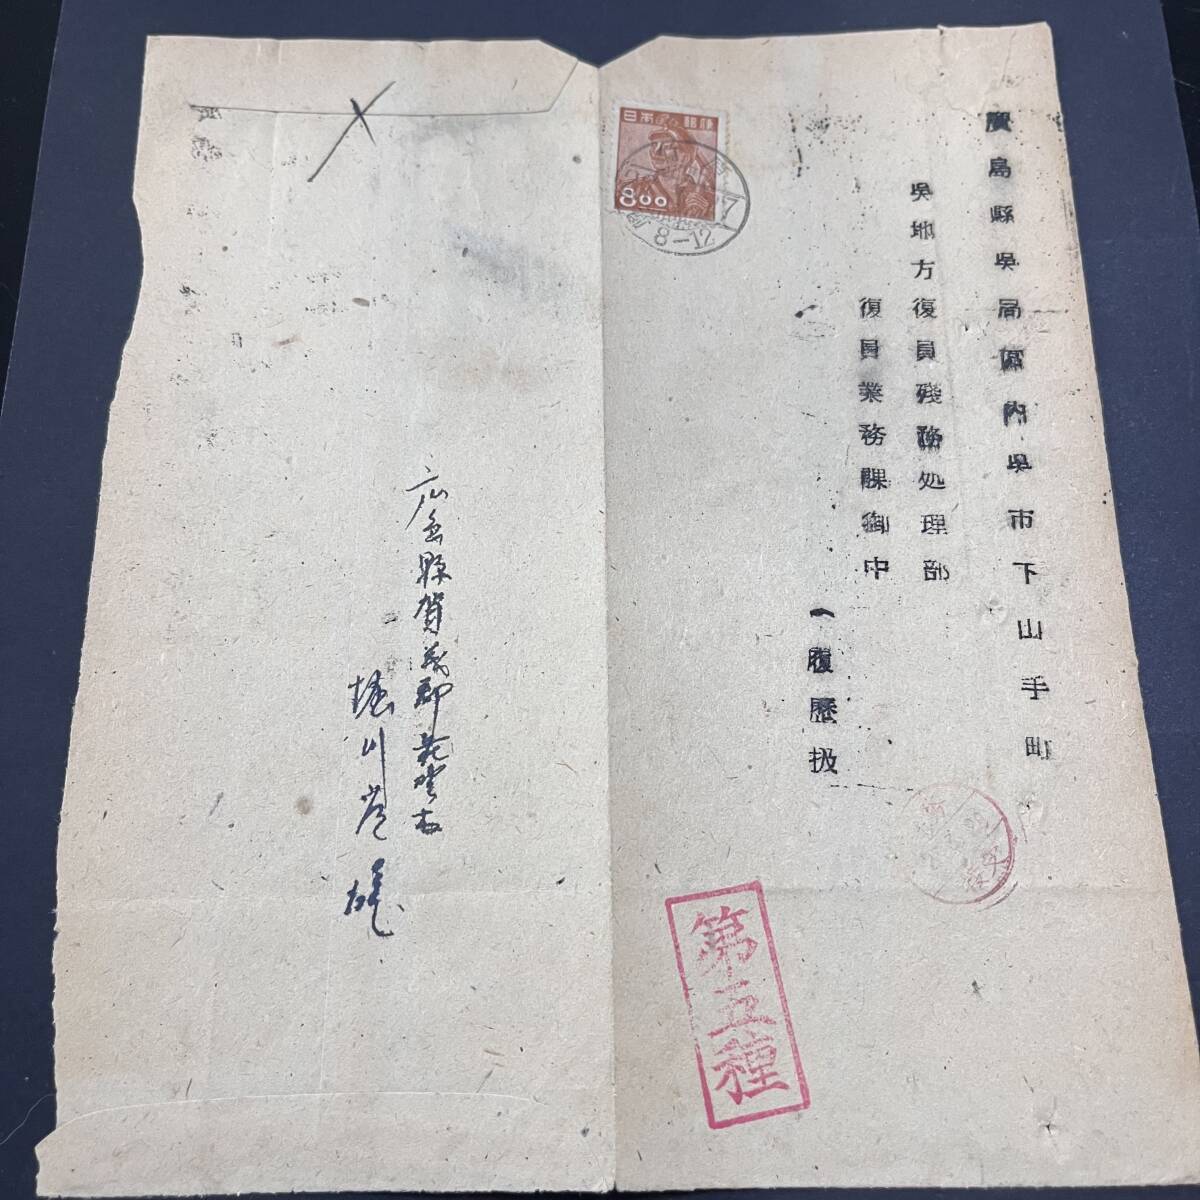 廣島縣呉局區内呉市下山手町
呉地方復員残務処理部
復員業務課御中
(履歴扱
日本郵便
8.00
8-12
第五種
広島縣賀茂郡
堀川
雄